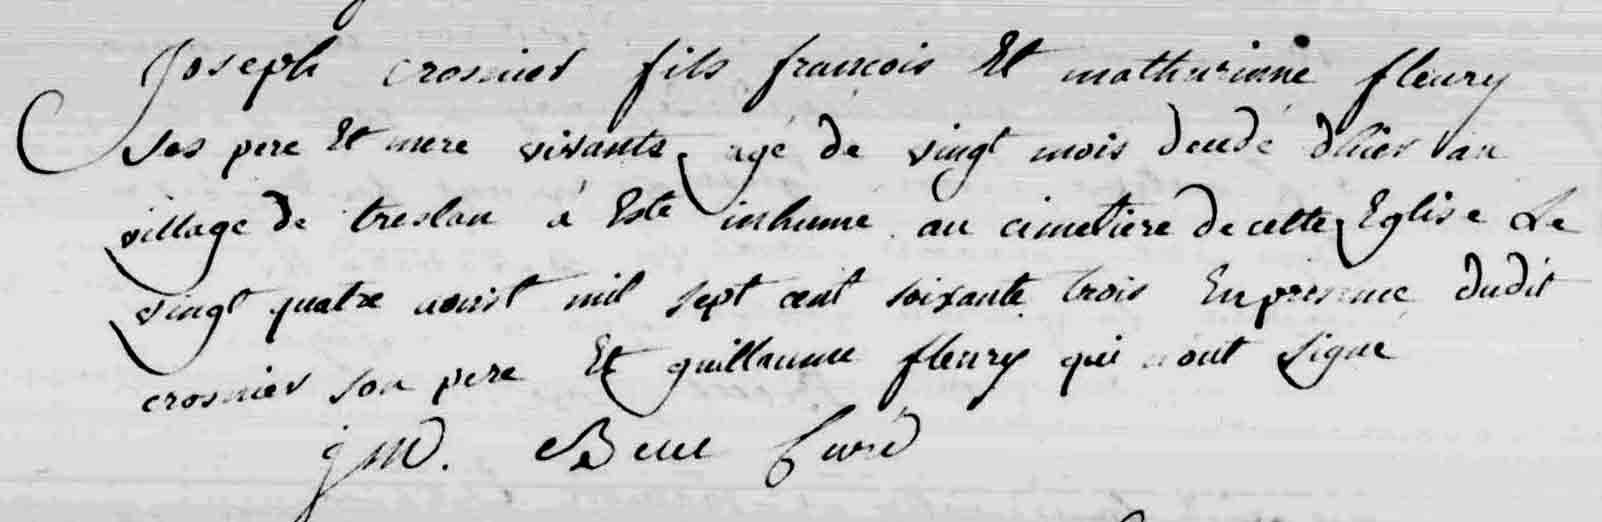 Joseph crosnier fils françois Et mathurinne fleury
ses pere Et mere vivants, agé de vingt mois decedé d'hier au
village de treslan à Esté inhumé au cimetiere de cette Eglise Le
vingt quatre aoust mil sept cent soixante trois En presence dudit
crosnier son pere Et guillaume fleury qui n'ont signé
j M. Curé